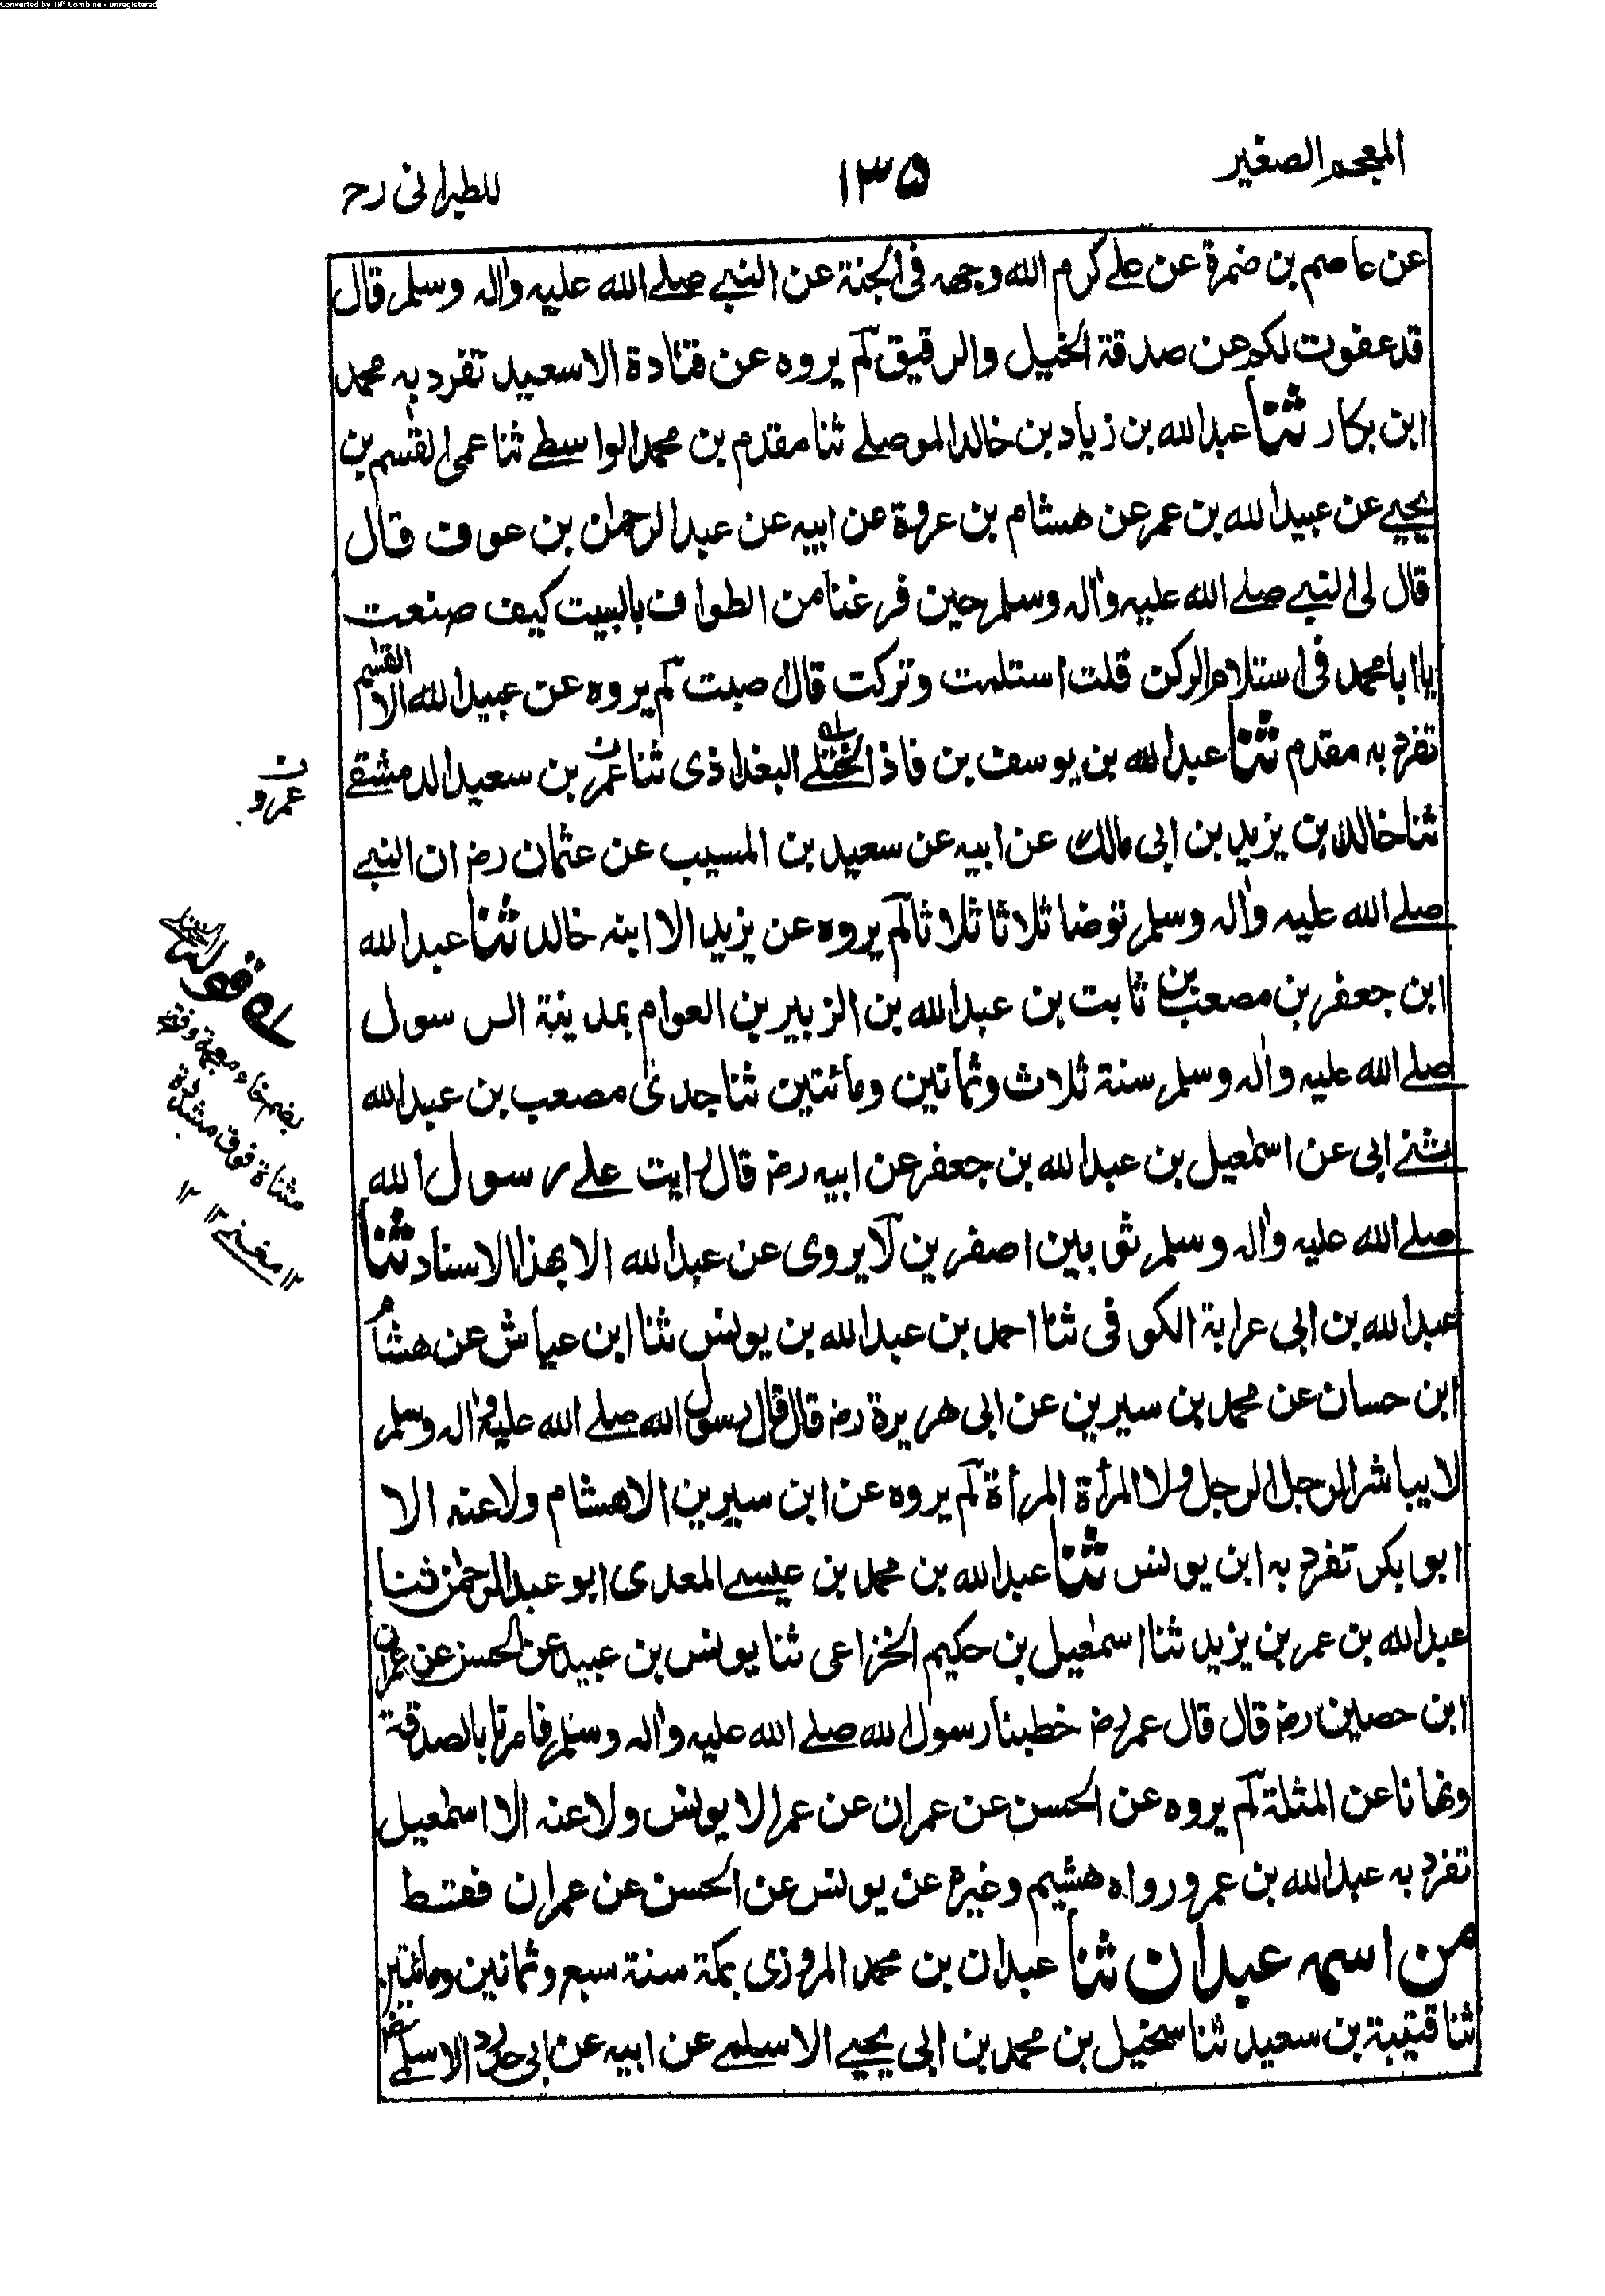 Converted by Tiff Combine - unregistered
المعجم الصغير
١٣٥
للطبرانی رح
عن عاصم بن ضمرة عن علے كرم الله وجهه فی الجنة عن النبے صلے الله عليه واٰله وسلم قال
قد عفوت لكم عن صدقة الخيل والرقيق لم يروه عن قتادة الا سعيد تفرد به محمد
ابن بكار ثنا عبد الله بن زياد بن خالد الموصلے ثنا مقدم بن محمد الواسطے ثنا عمی القٰسم بن
يحيےٰ عن عبيد الله بن عمر عن هشام بن عروة عن ابيه عن عبد الرحمٰن بن عوف قال
قال لی النبے صلے الله عليه واٰله وسلم حين فرغنا من الطواف بالبيت كيف صنعت
يا ابا محمد فی استلام الركن قلت استلمت وتركت قال اصبت لم يروه عن عبيد الله الا القٰسم
تفرد به مقدم ثنا عبد الله بن يوسف بن فاذ الختلے البغداذی ثنا عمر بن سعيد الدمشقے
ثنا خالد بن يزيد بن ابی مالك عن ابيه عن سعيد بن المسيب عن عثمان رض ان النبے
صلے الله عليه واٰله وسلم توضا ثلاثا ثلاثا لم يروه عن يزيد الا ابنه خالد ثنا عبد الله
ابن جعفر بن مصعب بن ثابت بن عبد الله بن الزبير بن العوام بمدينة الرسول
صلے الله عليه واٰله وسلم سنة ثلاث وثمانين ومائتين ثنا جدی مصعب بن عبد الله
ثنے ابی عن اسمٰعيل بن عبد الله بن جعفر عن ابيه رض قال رايت علے رسول الله
صلے الله عليه واٰله وسلم ثوبين اصفرين لا يروی عن عبد الله الا بهذا الاسناد ثنا
عبد الله بن ابی عرابة الكوفی ثنا احمد بن عبد الله بن يونس ثنا ابن عياش عن هشام
ابن حسان عن محمد بن سيرين عن ابی هريرة رض قال قال رسول الله صلے الله عليه واٰله وسلم
لا يباشر الرجل الرجل ولا المرأة المرأة لم يروه عن ابن سيرين الا هشام ولا عنه الا
ابو بكر تفرد به ابن يونس ثنا عبد الله بن محمد بن عيسے المعدی ابو عبد الرحمٰن ثنا
عبد الله بن عمر بن يزيد ثنا اسمٰعيل بن حكيم الخزاعی ثنا يونس بن عبيد عن الحسن عن عمران
ابن حصين رض قال قال عمر رض خطبنا رسول الله صلے الله عليه واٰله وسلم فامرنا بالصدقة
ونهانا عن المثلة لم يروه عن الحسن عن عمران عن عمر الا يونس ولا عنه الا اسمٰعيل
تفرد به عبد الله بن عمر ورواه هشيم وغيره عن يونس عن الحسن عن عمران فقط
من اسمه عبدان ثنا عبدان بن محمد المروزی بمكة سنة سبع وثمانين ومائتين
ثنا قتيبة بن سعيد ثنا سخيل بن محمد بن ابی يحيے الاسلمے عن ابيه عن ابی حدرد الاسلمے
ن
عمرو
له قوله
بضم خاء معجمة وفتح
مثناة فوق مشددة
١٢ مغنے ١٢ ١٢